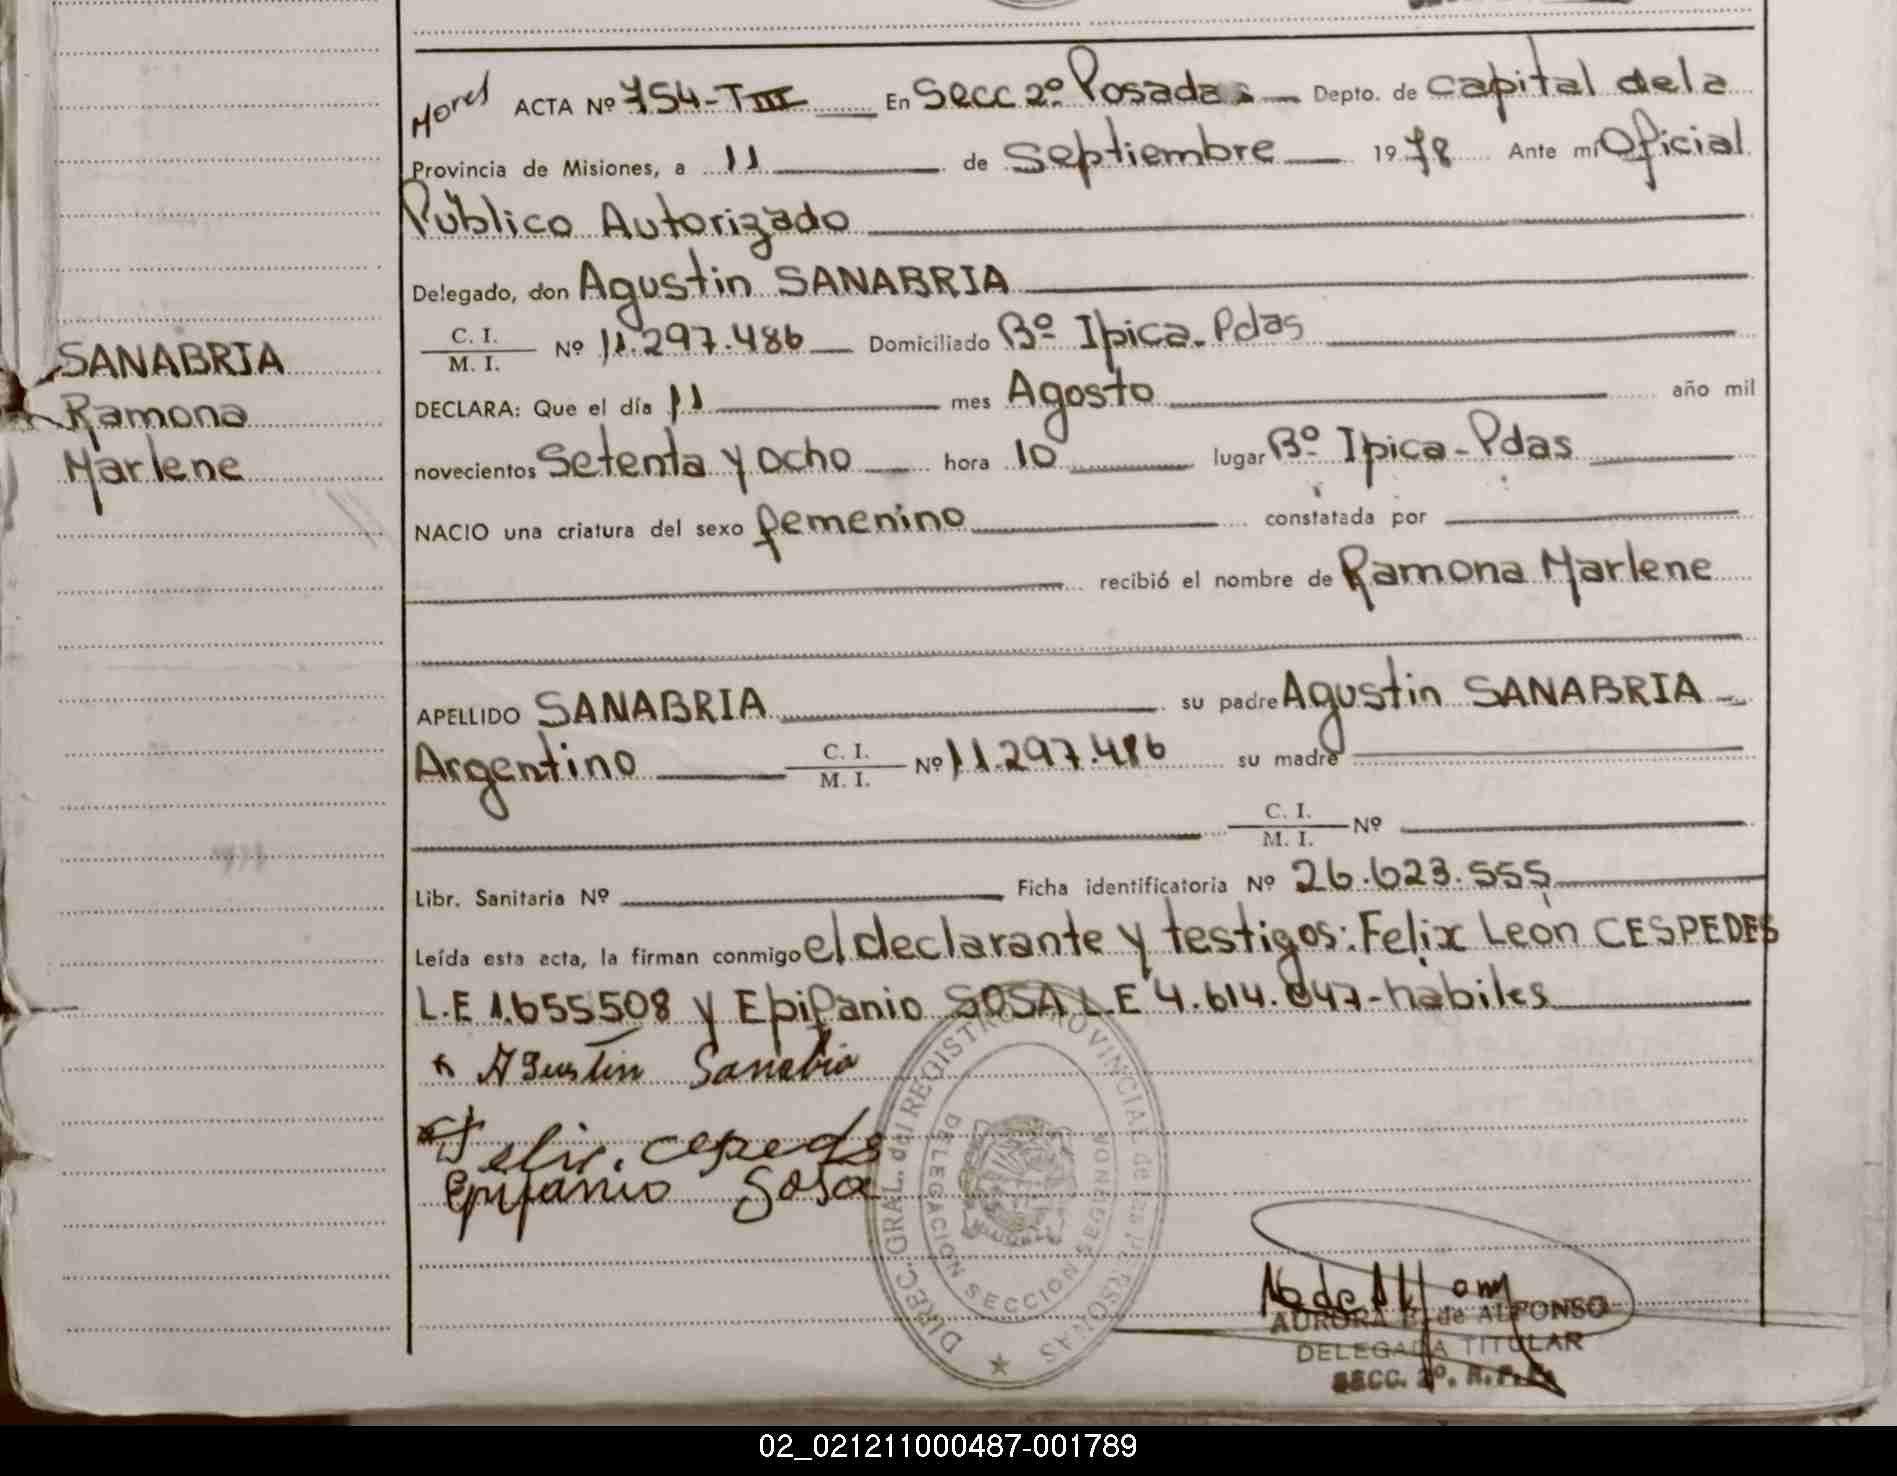 Morel ACTA Nº 754-TIII En Secc 2º Posadas Depto. de Capital de la
Provincia de Misiones, a 11 de Septiembre 1978 Ante mí Oficial
Público Autorizado
Delegado, don Agustin SANABRIA
C. I.
M. I. Nº 11.297.486 Domiciliado Bº Ipica-Pdas
SANABRIA
Ramona
Marlene
DECLARA: Que el día 11 mes Agosto año mil
novecientos setenta y ocho hora 10 lugar Bº Ipica-Pdas
NACIO una criatura del sexo femenino constatada por
recibió el nombre de Ramona Marlene
APELLIDO SANABRIA su padre Agustin SANABRIA
Argentino C. I.
M. I. Nº 11.297.486 su madre
C. I.
M. I. Nº
Libr. Sanitaria Nº Ficha identificatoria Nº 26.623.555
Leída esta acta, la firman conmigo el declarante y testigos: Felix Leon CESPEDES
L.E 1.655508 y Epifanio SOSA L.E 4.614.847-habiles
Agustin Sanabria
Felix. cepeds
Epifanio Sosa
DIREC. GRAL. del REGISTRO PROVINCIAL de las PERSONAS
DELEGACION SECCION SEGUNDA
AURORA B. de ALFONSO
DELEGADA TITULAR
SECC. 2º. R.P.P.
02_021211000487-001789